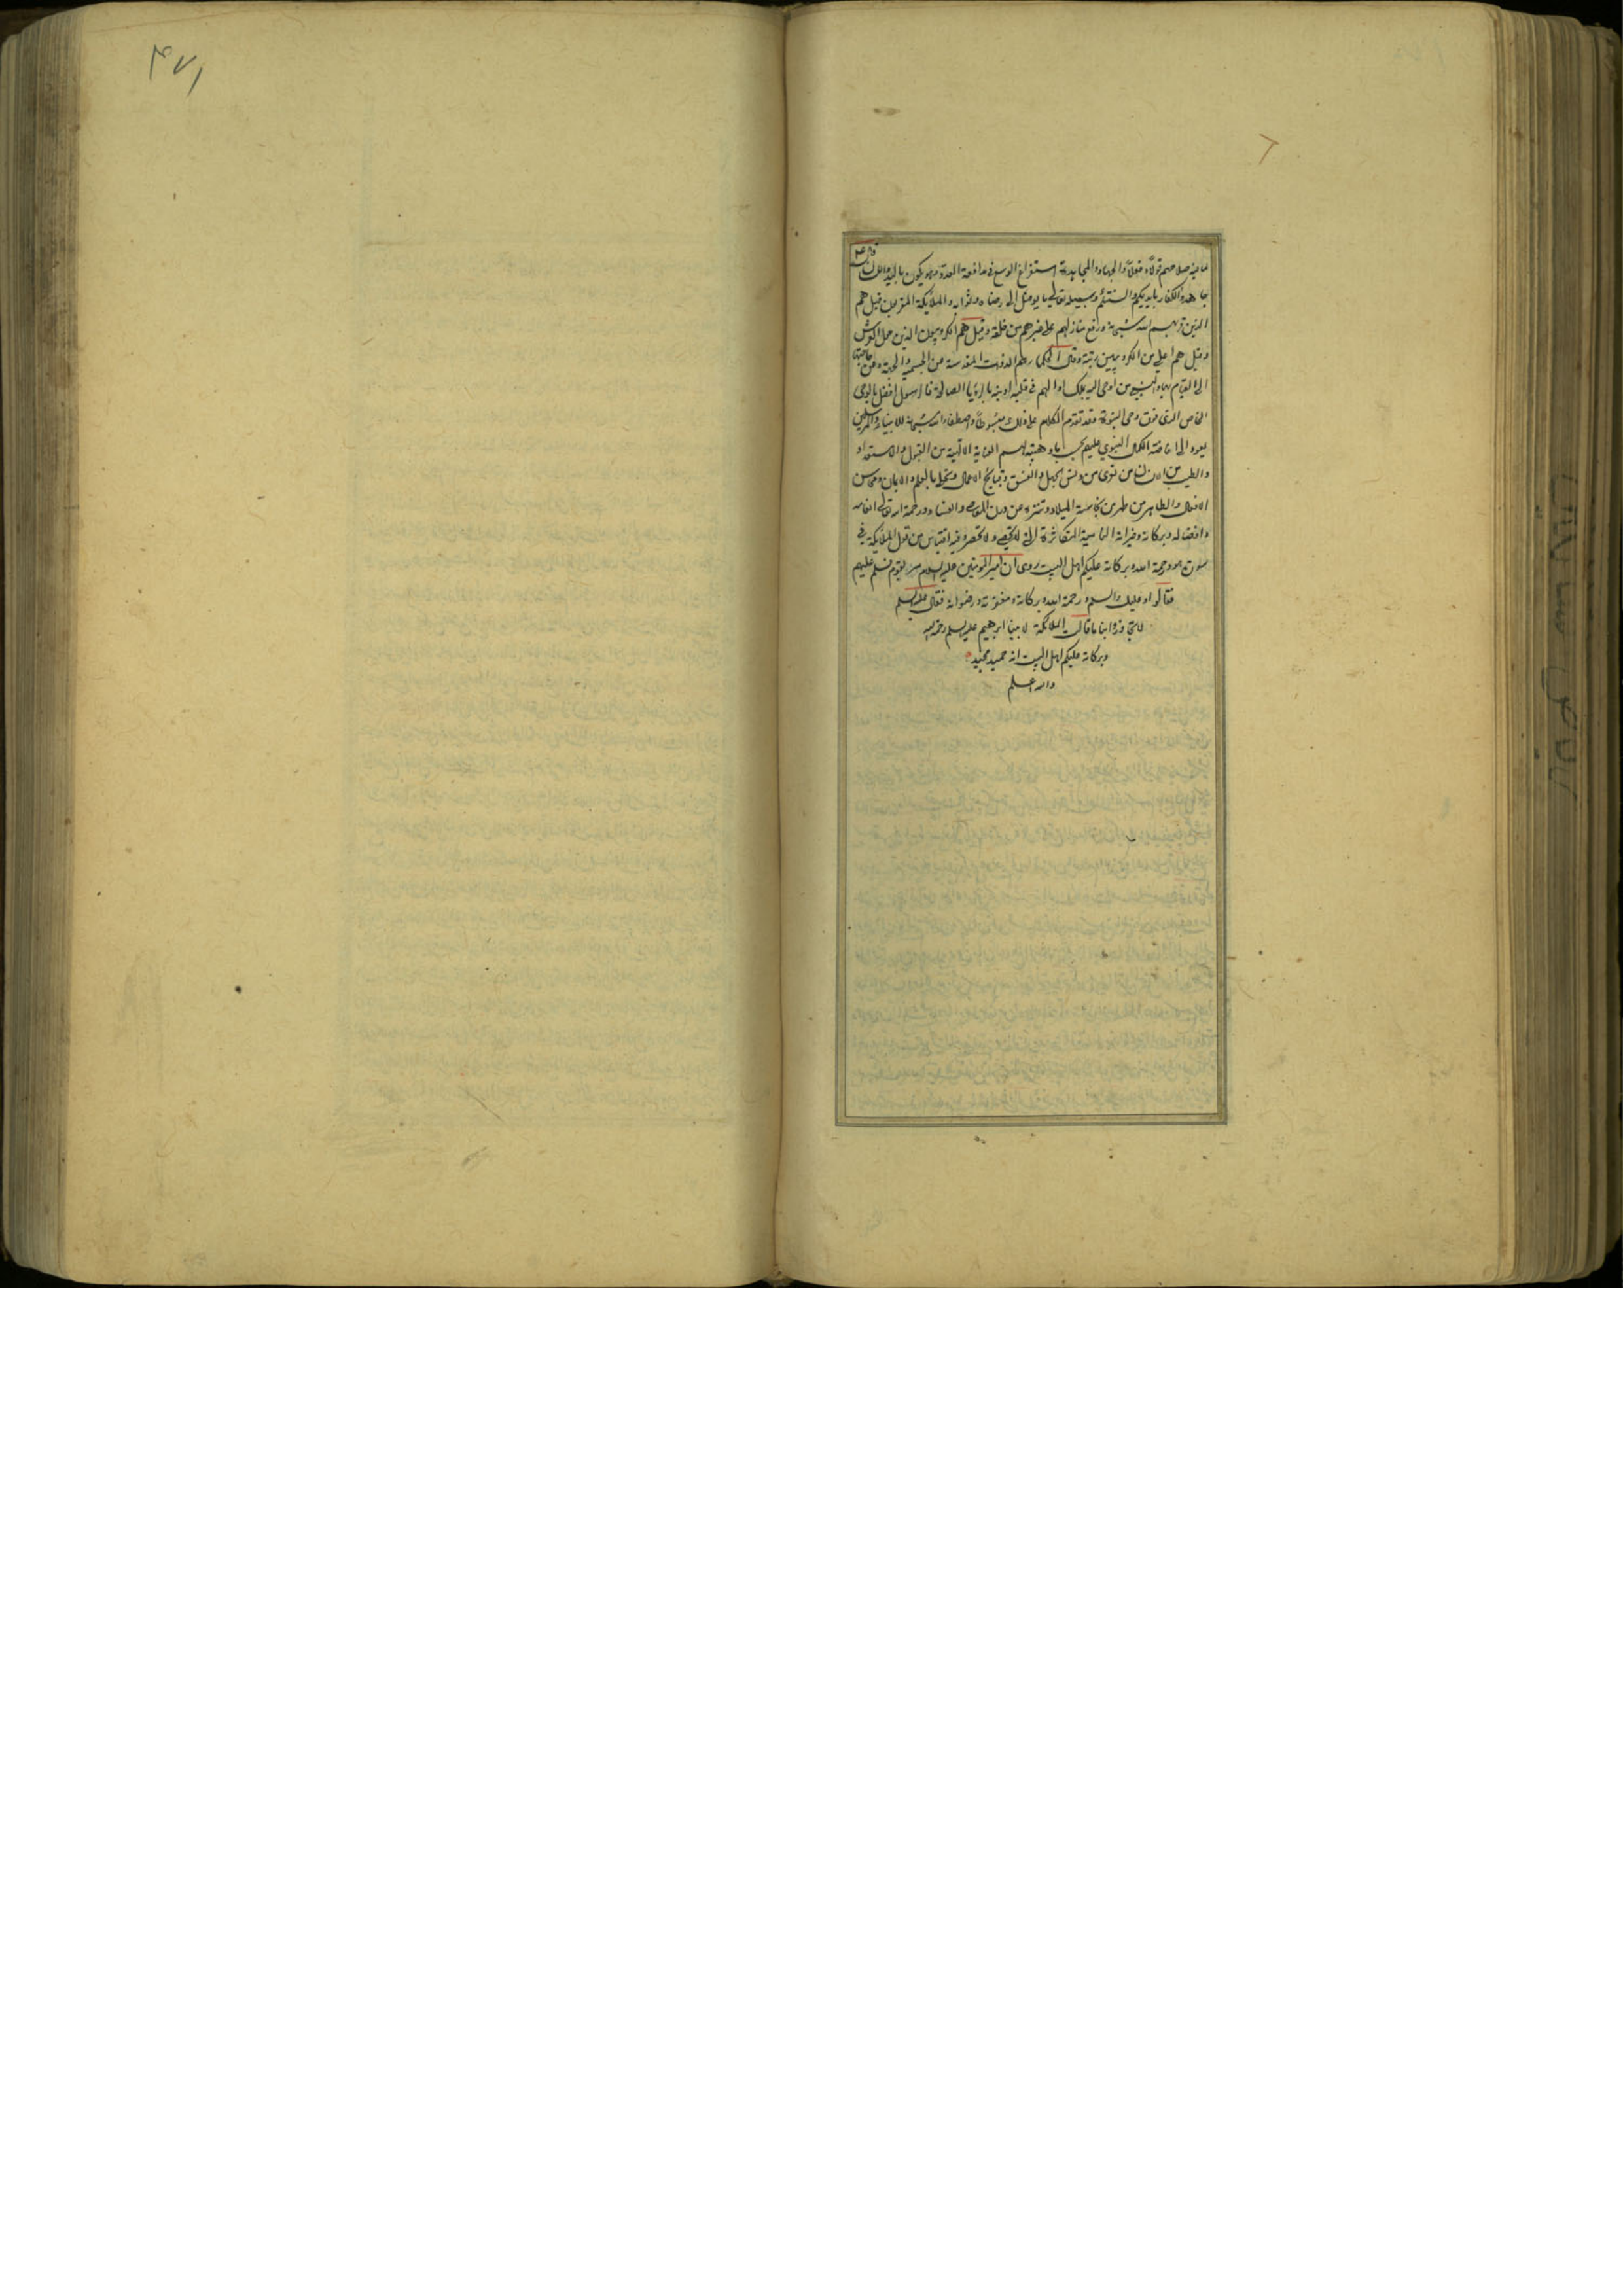 ۴۷۱
ما فيه صلاحهم قولا وفعلا والجهاد والمجاهدة استفراغ الوسع في مدافعة العدو وهو يكون باليد واللسان قال ع
جاهدوا الكفار بايديكم والسنتكم وسبيله تعالى ما يوصل الى رضاه وثوابه والملائكة المقربون قيل هم
الذين قربهم الله سبحانه ورفع منازلهم على غيرهم من خلقه وقيل هم الكروبيون الذين حول العرش
وقيل هم اعلى من الكروبيين رتبة وقال الحكماء هم الذوات المقدسة عن الجسمية والجهة وعن حاجتها
الى القيام بها والنبي من اوحى اليه بملك او الهم في قلبه او نبه بالرؤيا الصالحة فالرسول افضل بالوحي
الخاص الذي فوق وحي النبوة وقد تقدم الكلام على ذلك مبسوطا واصطفاء الله سبحانه للانبياء والمرسلين
يعود الى افاضة الكمال النبوي عليهم بحسب ما وهبته لهم العناية الالهية من القبول والاستعداد
والطيب من الانسان من تعرى من دنس الجهل والفسق وقبايح الاعمال وتحلى بالعلم والايمان ومحاسن
الافعال والطاهر من طهر من نجاسة الميلاد وتنزه عن درن المعاصي والفساد ورحمة الله تعالى انعامه
وافضاله وبركاته وخيراته النامية المتكاثرة التي لا تحصى ولا تحصر وفيه اقتباس من قول الملائكة في
سورة هود رحمة الله وبركاته عليكم اهل البيت روى ان امير المؤمنين عليه السلام مر بقوم فسلم عليهم
فقالوا وعليك السلام ورحمة الله وبركاته ومغفرته ورضوانه فقال عليه السلم
لا تجاوزوا بنا ما قالت الملائكة لابينا ابرهيم عليه السلم رحمة الله
وبركاته عليكم اهل البيت انه حميد مجيد
والله اعلم